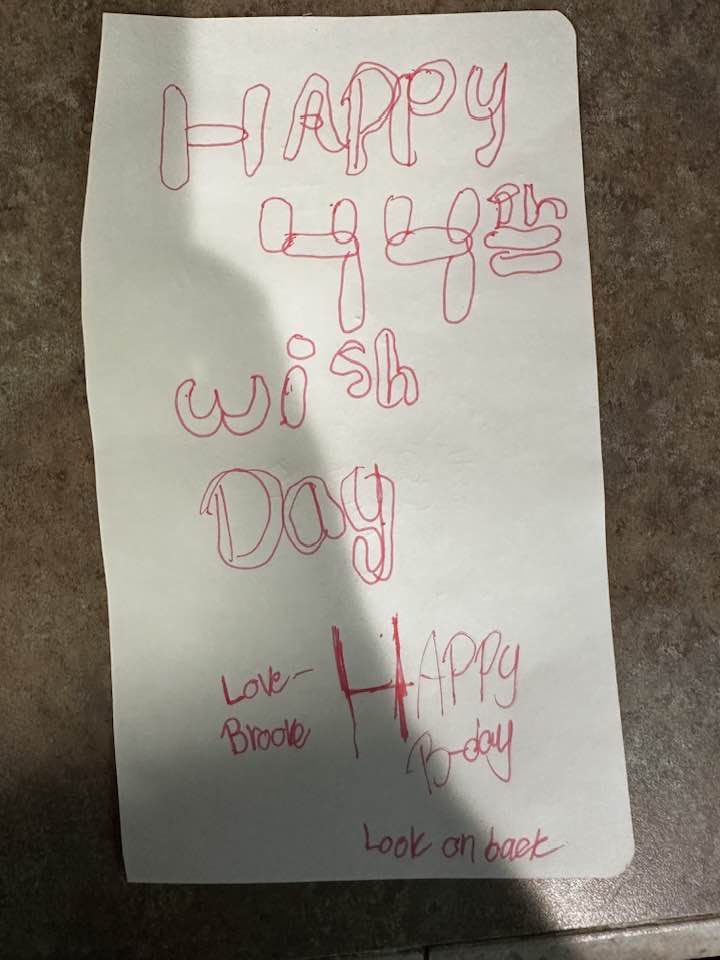 HAPPY
44th
wish
Day
Love-
Brooke
HAPPY
B-day
Look on back